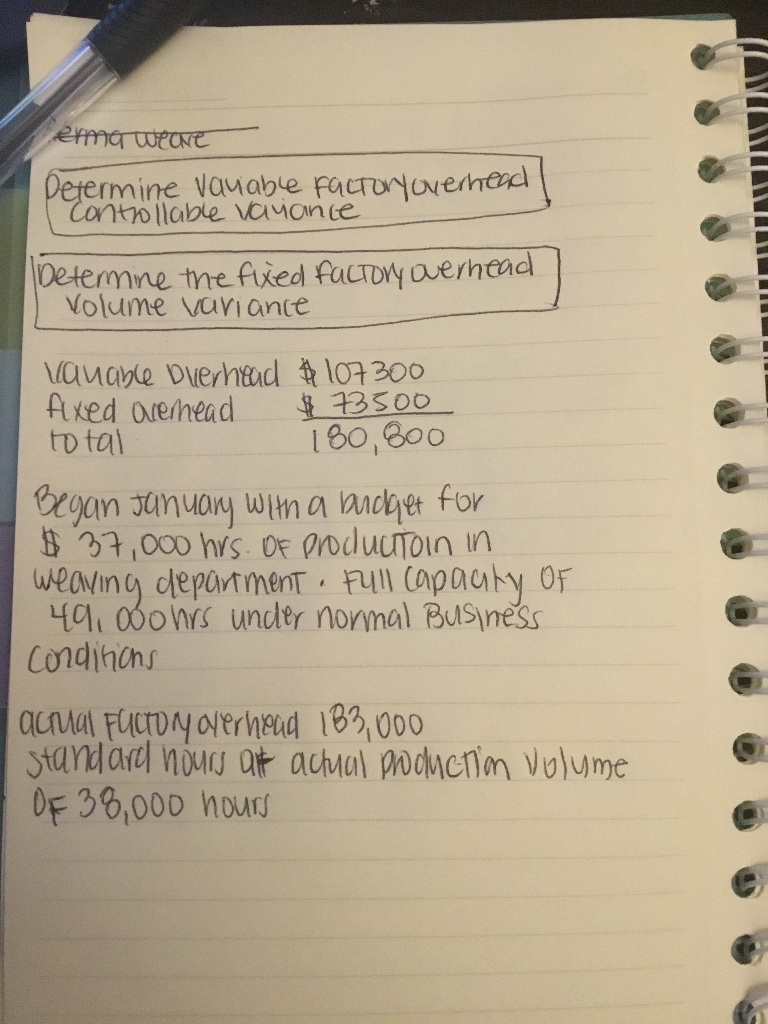 erma weave
Determine Variable Factory overhead
Controllable variance
Determine the fixed factory overhead
Volume variance
Variable Overhead $ 107300
fixed overhead $ 73500
total 180,800
Began January with a budget for
$ 37,000 hrs. of productoin in
weaving department. Full Capacity OF
49,000 hrs under normal Business
Conditions
actual Factory overhead 183,000
standard hours at actual production volume
OF 38,000 hours